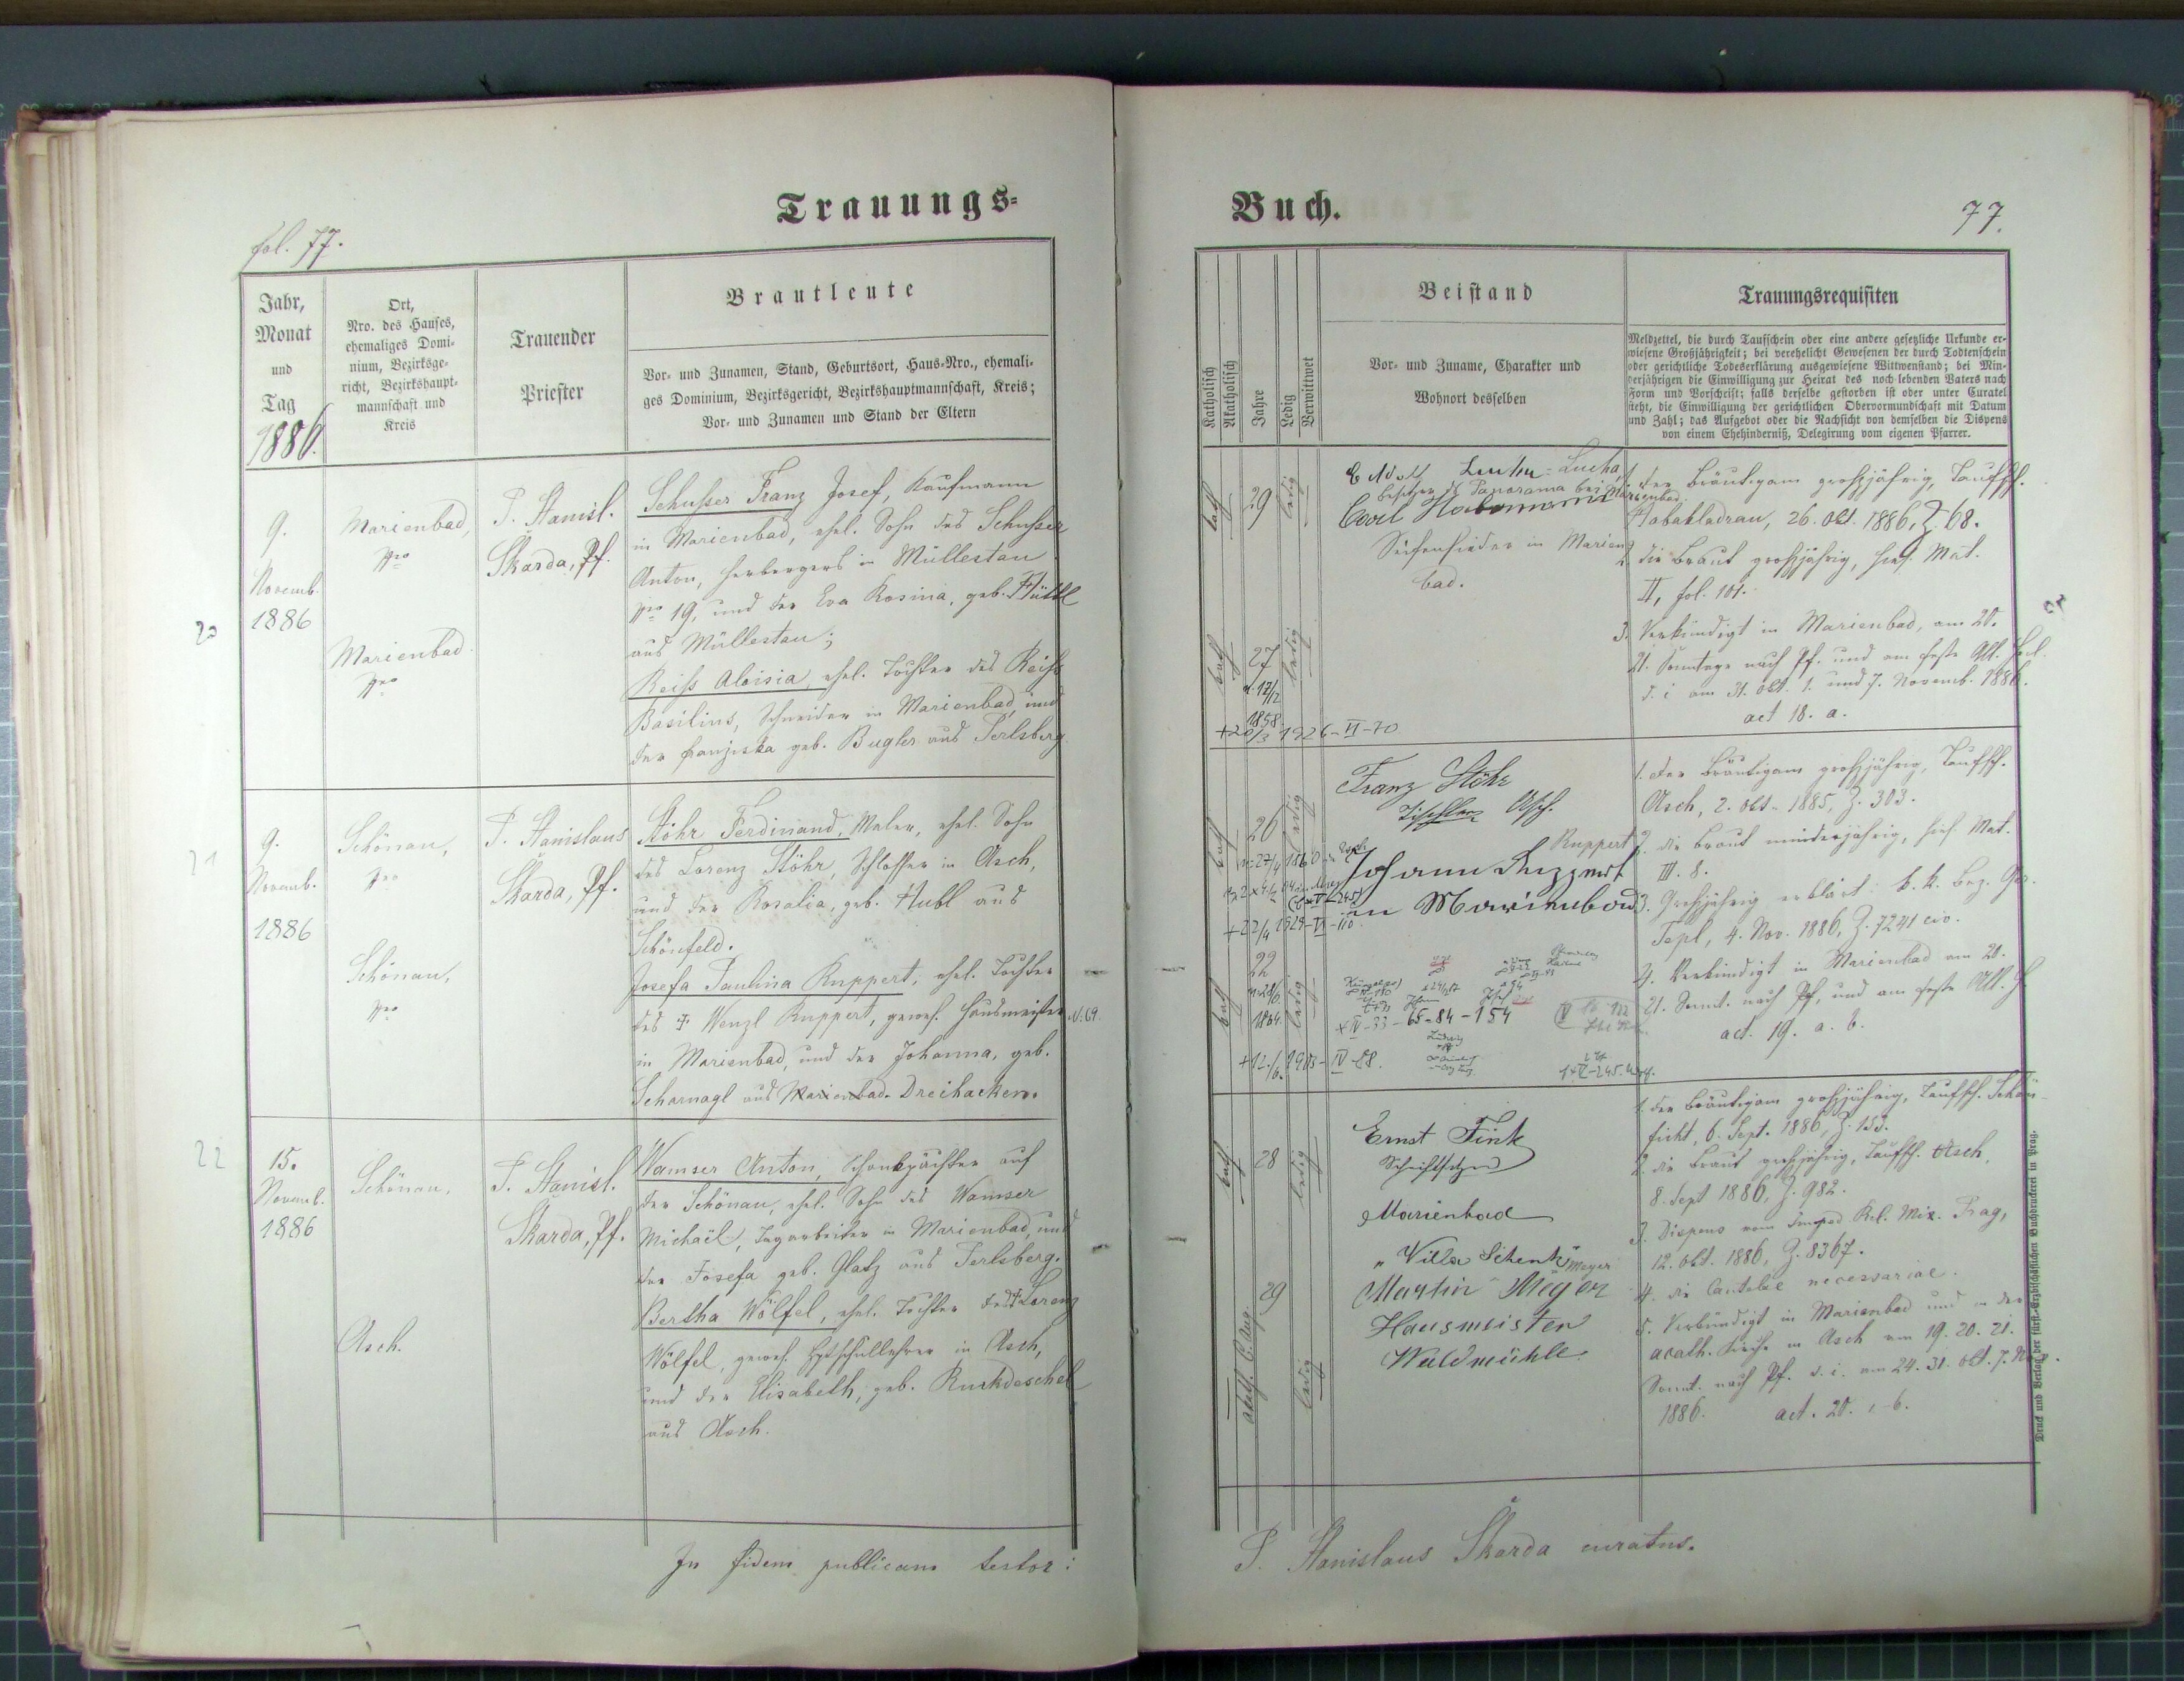 Trauungs=
fol. 77.
Jahr,
Monat
und
Tag
1886.
Ort,
Nro. des Hauses,
ehemaliges Domi-
nium, Bezirksge-
richt, Bezirkshaupt-
mannschaft und
Kreis
Trauender
Priester
Brautleute
Vor- und Zunamen, Stand, Geburtsort, Haus-Nro., ehemali-
ges Dominium, Bezirksgericht, Bezirkshauptmannschaft, Kreis;
Vor- und Zunamen und Stand der Eltern
20
9.
Novemb.
1886
Marienbad,
Nro
Marienbad.
Nro
P. Stanisl.
Skarda, Pf.
Schusser Franz Josef, Kaufmann
in Marienbad, ehel. Sohn des Schusser
Anton, Herbergers in Müllestau
Nro 19, und der Eva Rosina, geb. Hüttl
aus Müllestau;
Reiss Aloisia, ehel. Tochter des Reiss
Basilius, Schneider in Marienbad, und
der Franziska geb. Bugler aus Perlsberg
21
9.
Novemb.
1886
Schönau,
Nro
Schönau,
Nro
P. Stanislaus
Skarda, Pf.
Stöhr Ferdinand, Maler, ehel. Sohn
des Lorenz Stöhr, Schlosser in Asch,
und der Rosalia, geb. Hubl aus
Schönfeld.
Josefa Paulina Ruppert, ehel. Tochter
des † Wenzl Ruppert, gewes. Hausmeister N. 69.
in Marienbad, und der Johanna, geb.
Scharnagl aus Marienbad. Dreihacken.
22
15.
Novemb.
1886
Schönau,
Asch.
P. Stanisl.
Skarda, Pf.
Wamser Anton, Schankpächter auf
der Schönau, ehel. Sohn des Wamser
Michaël, Tagarbeiter in Marienbad, und
der Josefa geb. Glatz aus Perlsberg.
Bertha Wölfel, ehel. Tochter des † Lorenz
Wölfel, gewes. Hptschullehrer in Asch,
und der Elisabeth, geb. Ruckdeschel
aus Asch.
In fidem publicam testor:
Buch.
77.
Katholisch
Akatholisch
Jahre
Ledig
Verwittwet
Beistand
Vor- und Zuname, Charakter und
Wohnort desselben
Trauungsrequisiten
Meldzettel, die durch Taufschein oder eine andere gesetzliche Urkunde er-
wiesene Großjährigkeit; bei verehelicht Gewesenen der durch Todtenschein
oder gerichtliche Todeserklärung ausgewiesene Wittwenstand; bei Min-
derjährigen die Einwilligung zur Heirat des noch lebenden Vaters nach
Form und Vorschrift; falls derselbe gestorben ist oder unter Curatel
steht, die Einwilligung der gerichtlichen Obervormundschaft mit Datum
und Zahl; das Aufgebot oder die Nachsicht von demselben die Dispens
von einem Ehehinderniß, Delegirung vom eigenen Pfarrer.
kath
29
ledig
Lucha
Besitzer d. Panorama bei Marienbad.
Carl Habermann
Seifensieder in Marien
bad.
kath
27
n. 12/2
1858.
ledig
+20/3 1926-VI-70
1. Der Bräutigam großjährig, Taufsch.
Habakladrau, 26. Okt. 1886, Z. 68.
2. die Braut großjährig, hies. Mat.
II, fol. 101.
3. Verkündigt in Marienbad, am 20.
21. Sonntage nach Pf. und am Feste All. Heil.
d. i. am 31. Okt. 1. und 7. Novemb. 1886.
act 18. a.
kath
26
ledig
Franz Stöhr
Tischler Asch.
Ruppert
Johann Ruppert
in Marienbad
+22/4 1929-VI-110
kath
22
1864.
ledig
65-84-154
1. Der Bräutigam großjährig, Taufsch.
Asch, 2. Okt. 1885, Z. 303.
2. die Braut minderjährig, hies. Mat.
III. 8.
3. Großjährig erklärt: k. k. Bez. Ger.
Tepl, 4. Nov. 1886, Z. 7241 civ.
4. Verkündigt in Marienbad am 20.
21. Sonnt. nach Pf, und am Feste All. H.
act. 19. a. b.
kath.
28
ledig
Ernst Fink
Schriftsetzer
Marienbad
"Villa Schenk"
Meyer
akath. C. Aug.
29
ledig
Martin Meyer
Hausmeister
Waldmühle.
1. Der Bräutigam großjährig, Taufsch. Schön-
ficht, 6. Sept. 1886, Z. 153.
2. die Braut großjährig, Taufsch. Asch,
8. Sept 1886, Z. 982.
3. Dispens vom Imped. Rel. Mix. Prag,
12. Okt. 1886, Z. 8367.
4. die Cautelae necessariae.
5. Verkündigt in Marienbad und in der
acath. Kirche in Asch am 19. 20. 21.
Sonnt. nach Pf. d. i. am 24. 31. Okt. 7. Nov.
1886. act. 20.
Druck und Verlag der fürst-erzbischöflichen Buchdruckerei in Prag.
P. Stanislaus Skarda curatus.